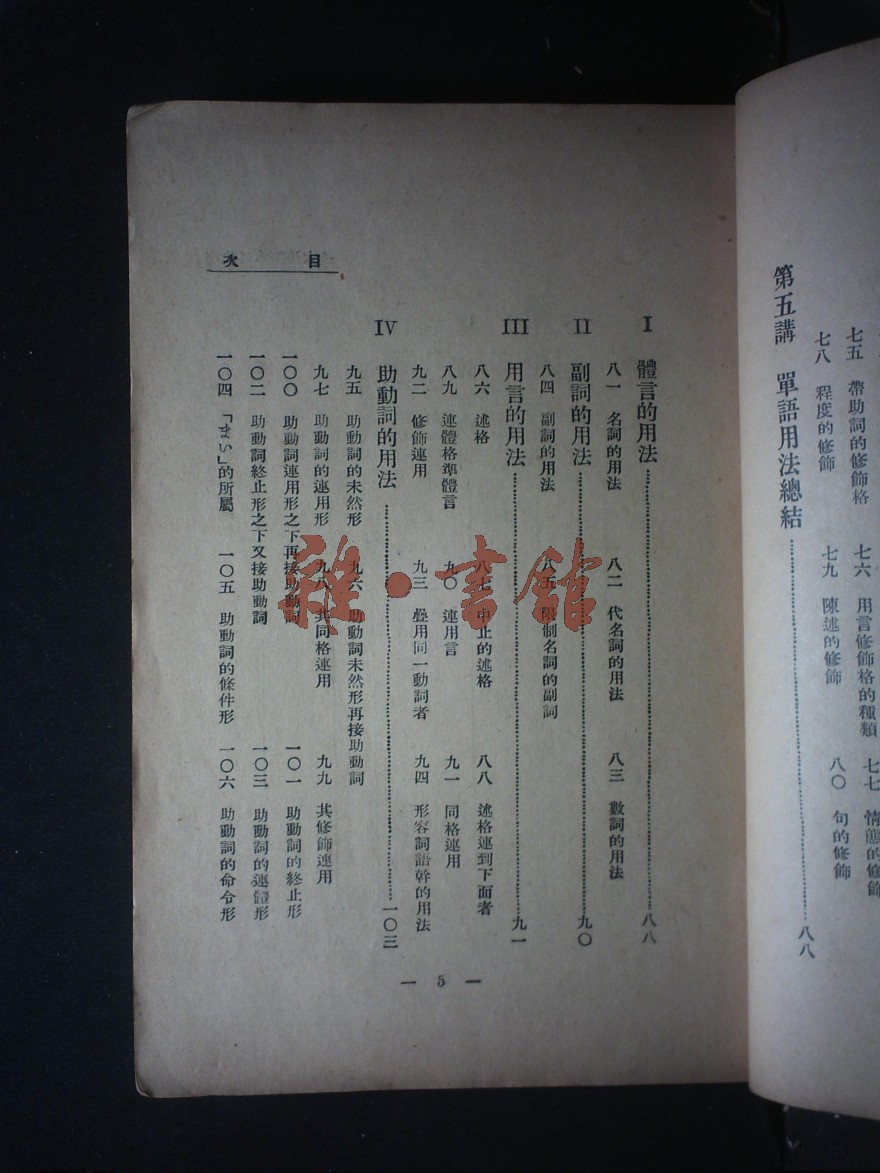 七五　帶助詞的修飾格　七六　用言修飾格的種類　七七　情態的修飾
七八　程度的修飾　七九　陳述的修飾　八〇　句的修飾
第五講　單語用法總結……八八
目次
I　體言的用法……八八
八一　名詞的用法　八二　代名詞的用法　八三　數詞的用法
II　副詞的用法……九〇
八四　副詞的用法　八五　限制名詞的副詞
III　用言的用法……九一
八六　述格　八七　中止的述格　八八　述格連到下面者
八九　連體格準體言　九〇　連用言　九一　同格連用
九二　修飾連用　九三　疊用同一動詞者　九四　形容詞語幹的用法
IV　助動詞的用法……一〇三
九五　助動詞的未然形　九六　助動詞未然形再接助動詞
九七　助動詞的連用形　九八　共同格連用　九九　其修飾連用
一〇〇　助動詞連用形之下再接助動詞　一〇一　助動詞的終止形
一〇二　助動詞終止形之下又接助動詞　一〇三　助動詞的連體形
一〇四　「まい」的所屬　一〇五　助動詞的條件形　一〇六　助動詞的命令形
— 5 —
雜·書館